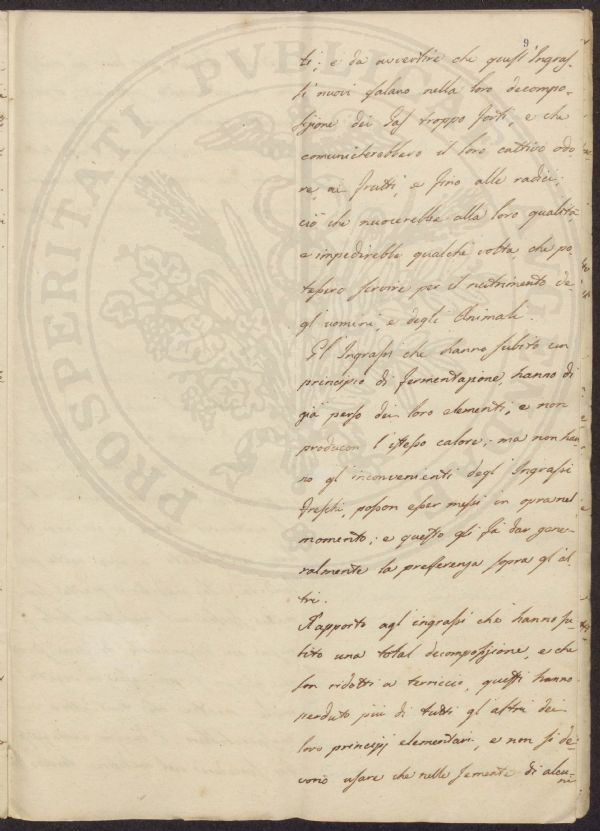 9
ti; e da avvertire che questi Ingras-
si nuovi esalano nella loro decompo-
sizione dei Gas troppo forti, e che
comunicherebbero il loro cattivo odo
re, ai frutti, e fino alle radici;
ciò che nuocerebbe alla loro qualità
e impedirebbe qualche volta che po-
tessero servire per il nutrimento de-
gl'uomini, e degli Animali.
Gl'Ingrassi che hanno subito un
principio di fermentazione, hanno di
già perso dei loro elementi, e non
producon l'istesso calore; ma non han
no gl'inconvenienti degl'Ingrassi
freschi, posson esser messi in opra nel
momento; e questo gli fà dar gene-
ralmente la preferenza sopra gl'al-
tri.
Rapporto agl'ingrassi che hanno su
bito una total decomposizione, e che
son ridotti a terriccio, questi hanno
perduto più di tutti gl'altri dei
loro principj elementari, e non si de-
vono usare che nelle semente di alcu-
ni
PROSPERITATI PVBLICAE